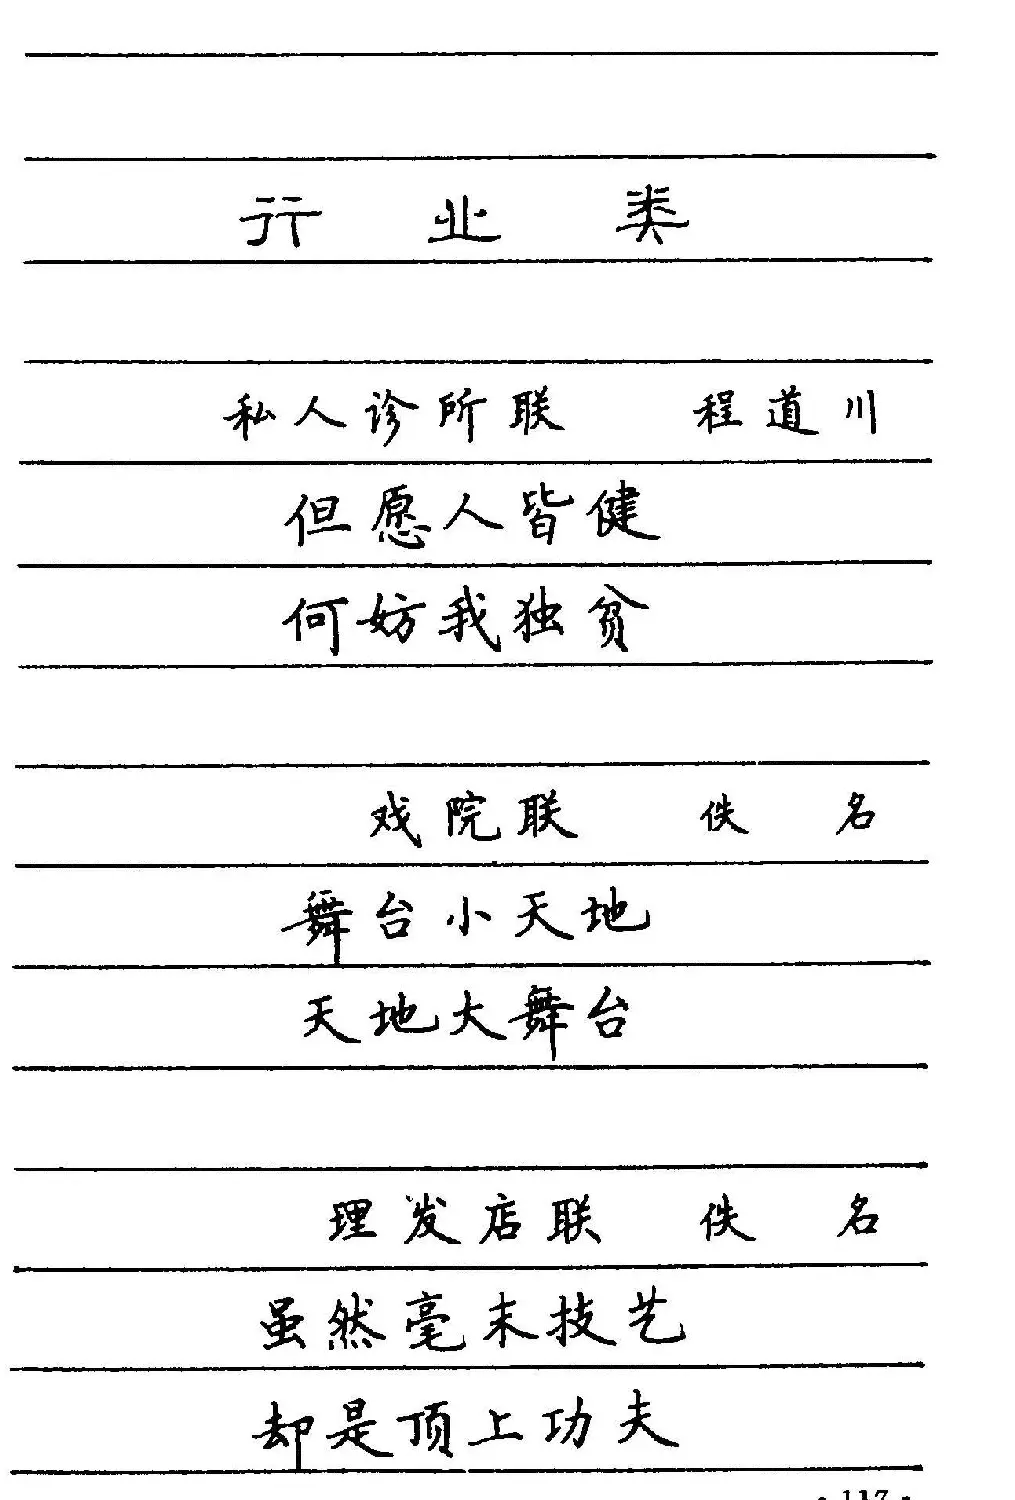 行 业 类
私人诊所联 程道川
但愿人皆健
何妨我独贫
戏院联 佚 名
舞台小天地
天地大舞台
理发店联 佚 名
虽然毫末技艺
却是顶上功夫
· 117 ·